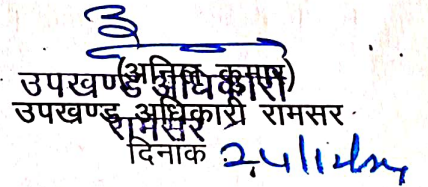 (अनिल कुमार)
उपखण्ड अधिकारी
उपखण्ड अधिकारी रामसर
रामसर
दिनाक 24/12/24